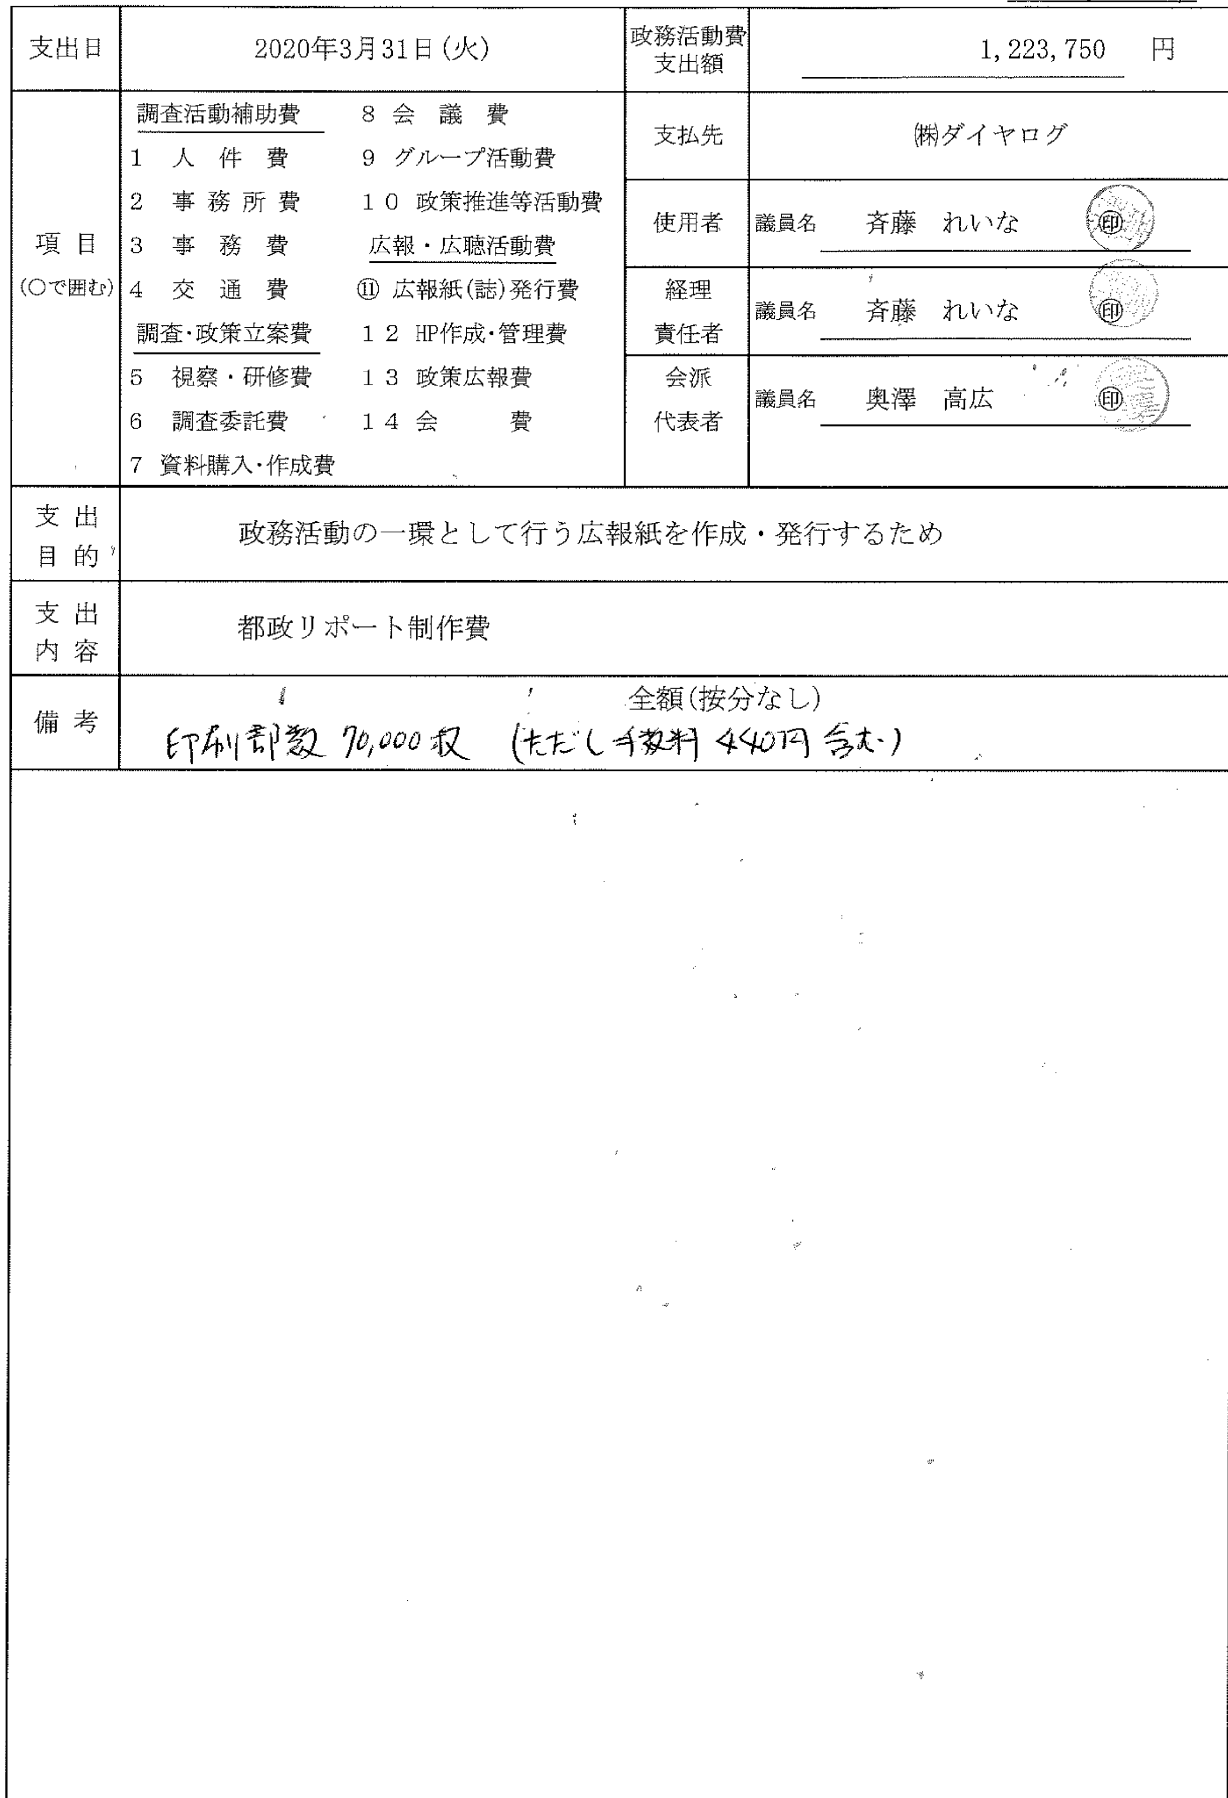 支出日 2020年3月31日(火) 政務活動費支出額 1,223,750 円
項目
(○で囲む)
調査活動補助費
1 人件費
2 事務所費
3 事務費
4 交通費
調査・政策立案費
5 視察・研修費
6 調査委託費
7 資料購入・作成費
8 会議費
9 グループ活動費
10 政策推進等活動費
広報・広聴活動費
⑪ 広報紙(誌)発行費
12 HP作成・管理費
13 政策広報費
14 会費
支払先 ㈱ダイヤログ
使用者 議員名 斉藤 れいな ㊞
経理責任者 議員名 斉藤 れいな ㊞
会派代表者 議員名 奥澤 高広 ㊞
支出目的 政務活動の一環として行う広報紙を作成・発行するため
支出内容 都政リポート制作費
備考 全額(按分なし)
印刷部数 70,000枚 (ただし手数料 440円 含む)